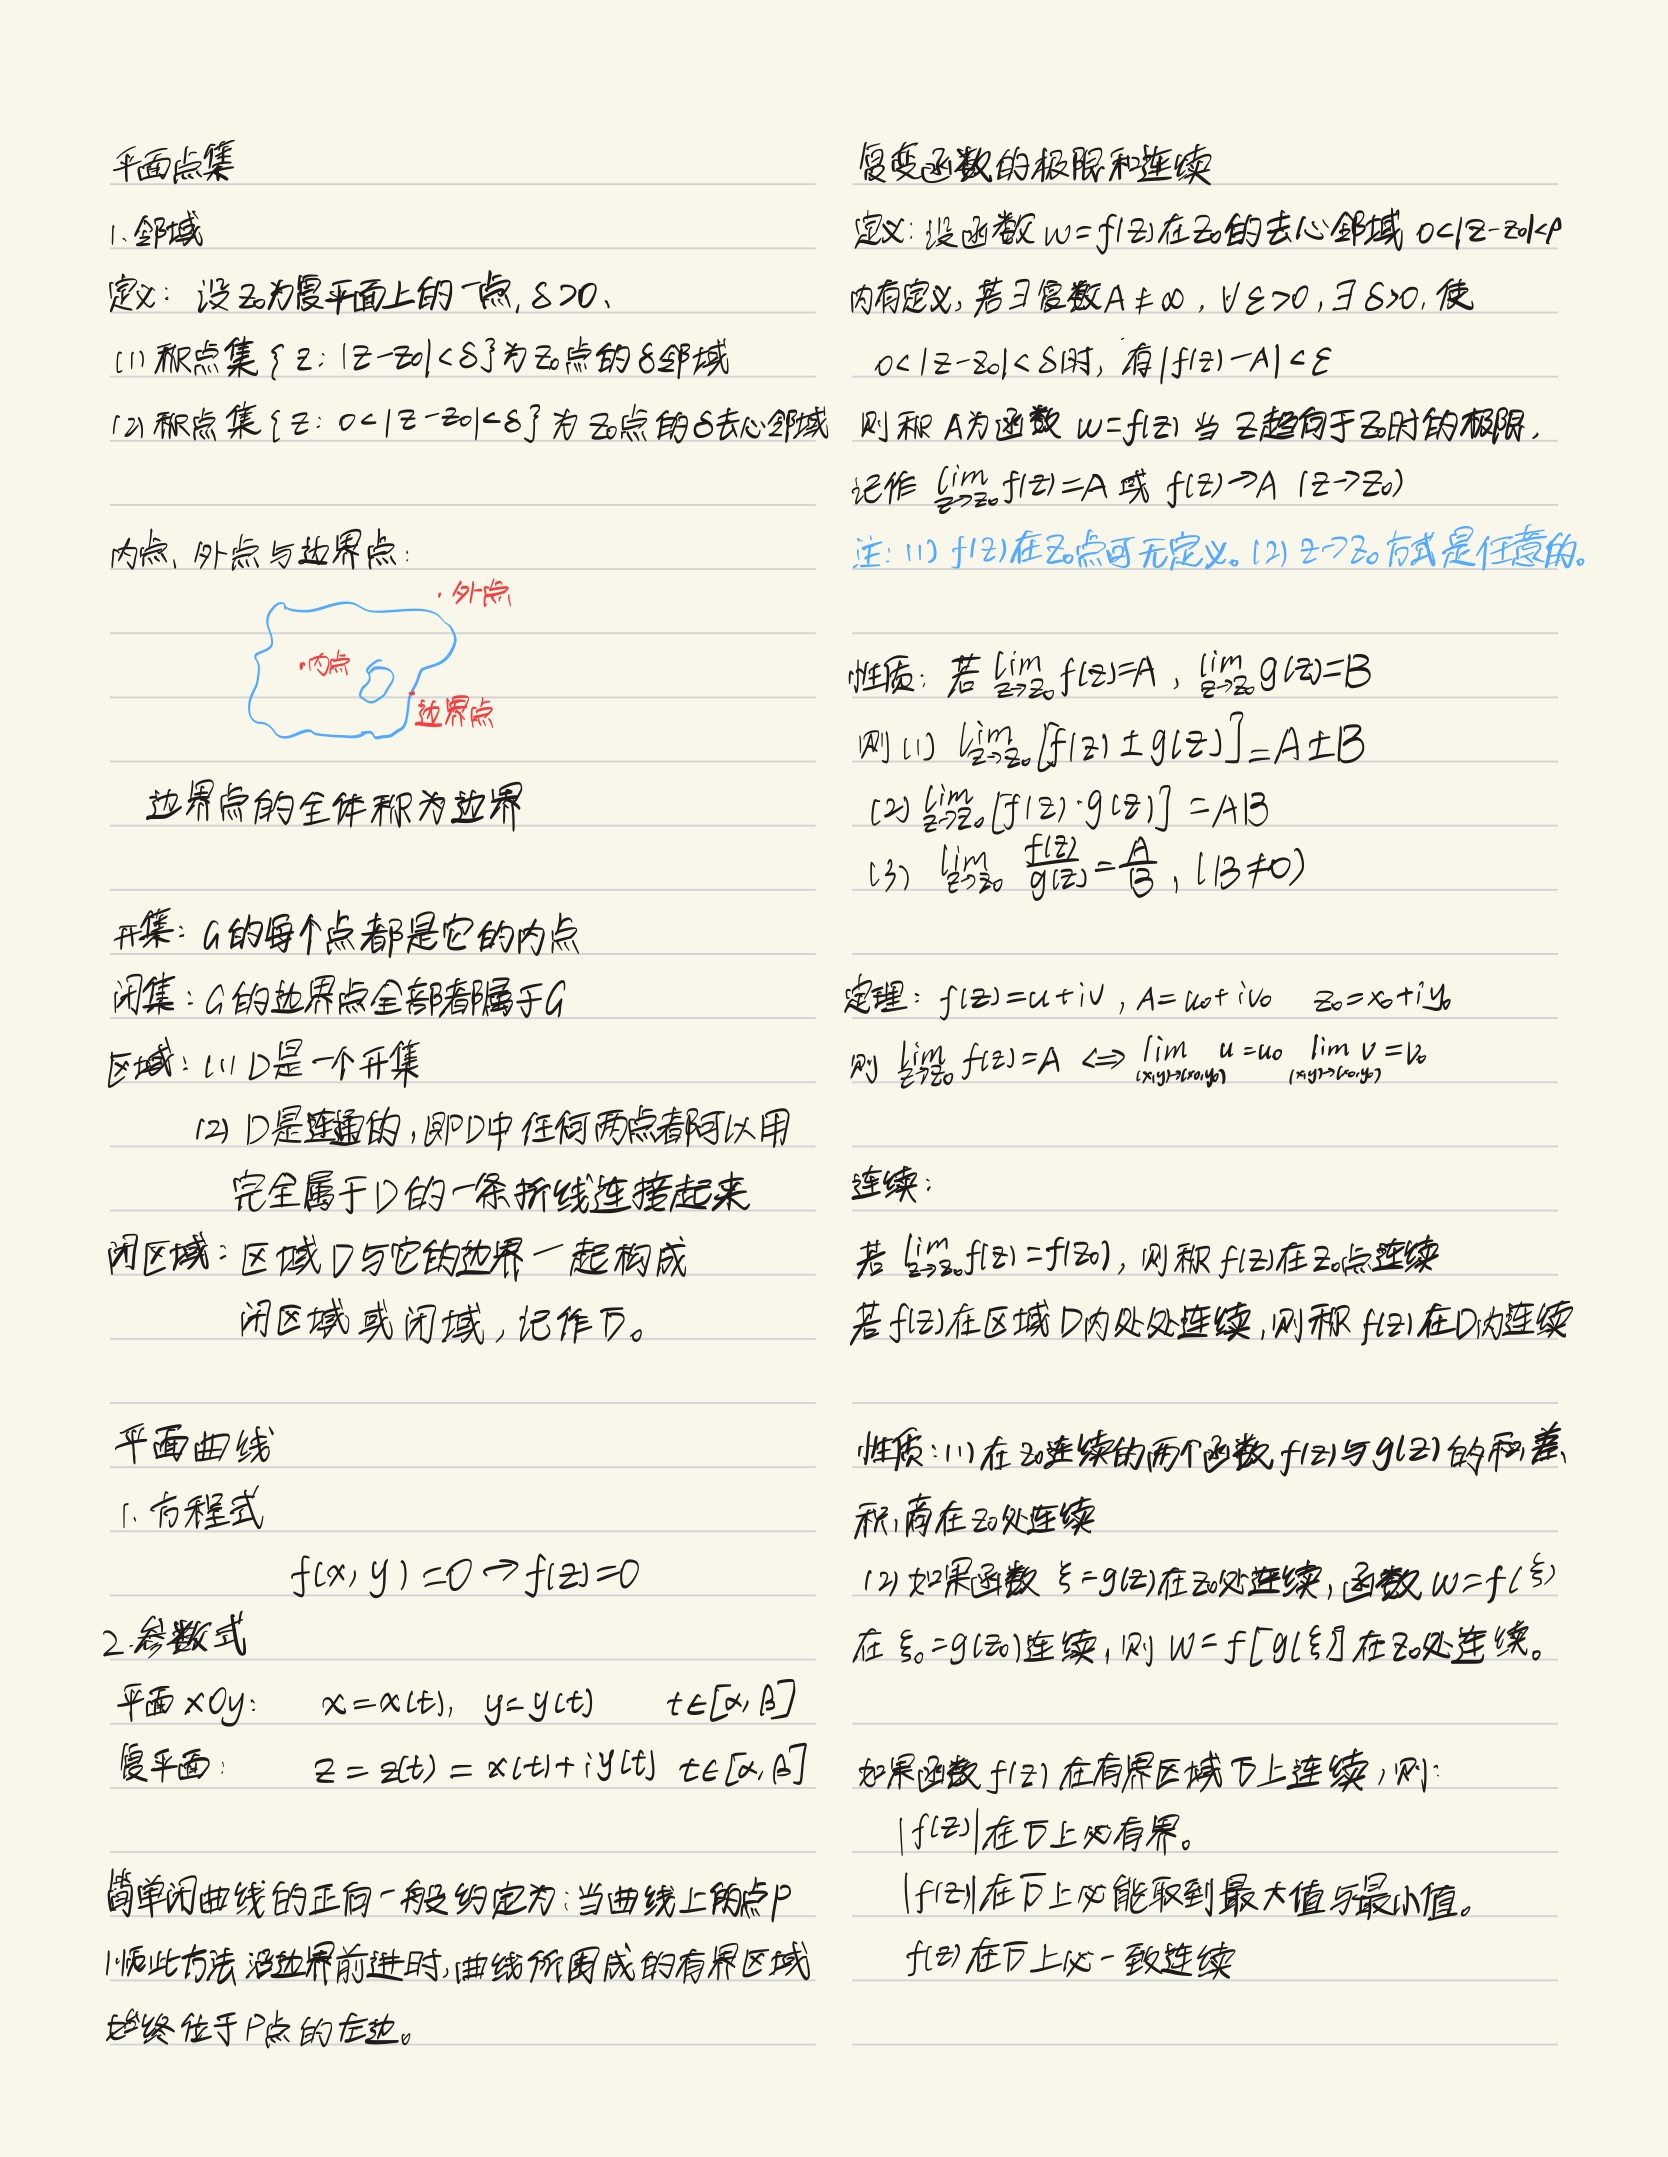 平面点集
1. 邻域
定义: 设z₀为复平面上的一点, δ>0、
(1) 称点集{z: |z-z₀|<δ}为z₀点的δ邻域
(2) 称点集{z: 0<|z-z₀|<δ}为z₀点的δ去心邻域
内点、外点与边界点:
·外点
·内点
边界点
边界点的全体称为边界
开集: G的每个点都是它的内点
闭集: G的边界点全部都属于G
区域: (1) D是一个开集
(2) D是连通的, 即D中任何两点都可以用
完全属于D的一条折线连接起来
闭区域: 区域D与它的边界一起构成
闭区域或闭域, 记作D̅。
平面曲线
1. 方程式
f(x, y)=0→f(z)=0
2.参数式
平面xOy: x=x(t), y=y(t) t∈[α,β]
复平面: z=z(t)=x(t)+iy(t) t∈[α,β]
简单闭曲线的正向一般约定为:当曲线上的点P
顺此方法沿边界前进时,曲线所围成的有界区域
始终位于P点的左边。
复变函数的极限和连续
定义: 设函数w=f(z)在z₀的去心邻域 0<|z-z₀|<ρ
内有定义, 若∃复数A≠∞, ∀ε>0, ∃δ>0, 使
0<|z-z₀|<δ时, 有|f(z)-A|<ε
则称A为函数w=f(z)当z趋向于z₀时的极限.
记作 lim z→z₀ f(z)=A 或 f(z)→A (z→z₀)
注: (1) f(z)在z₀点可无定义。(2) z→z₀方式是任意的。
性质: 若 lim z→z₀ f(z)=A, lim z→z₀ g(z)=B
则(1) lim z→z₀ [f(z)±g(z)]=A±B
(2) lim z→z₀ [f(z)·g(z)]=AB
(3) lim z→z₀ f(z)/g(z)=A/B, (B≠0)
定理: f(z)=u+iv, A=u₀+iv₀ z₀=x₀+iy₀
则 lim z→z₀ f(z)=A ⇔ lim (x,y)→(x₀,y₀) u=u₀ lim (x,y)→(x₀,y₀) v=v₀
连续:
若 lim z→z₀ f(z)=f(z₀), 则称f(z)在z₀点连续
若f(z)在区域D内处处连续, 则称f(z)在D内连续
性质: (1) 在z₀连续的两个函数f(z)与g(z)的和、差、
积、商在z₀处连续
(2)如果函数 ξ=g(z)在z₀处连续, 函数w=f(ξ)
在ξ₀=g(z₀)连续, 则 w=f[g(ξ)]在z₀处连续。
如果函数f(z)在有界区域D̅上连续, 则:
|f(z)|在D̅上必有界。
|f(z)|在D̅上必能取到最大值与最小值。
f(z)在D̅上必一致连续